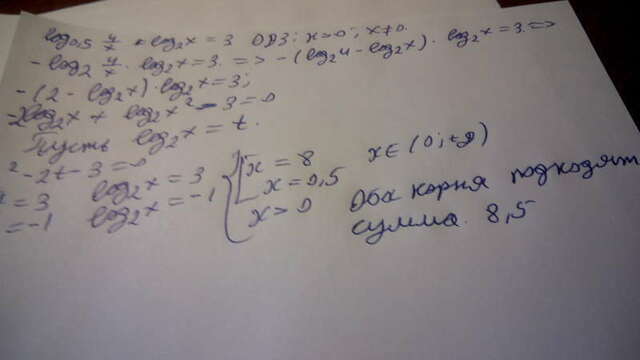 log₀,₅ 4/x · log₂x = 3 ОДЗ: x>0; x≠0.
-log₂ 4/x · log₂x = 3. => -(log₂4 - log₂x) · log₂x = 3 =>
-(2 - log₂x) · log₂x = 3;
-2log₂x + log₂x² - 3 = 0
Пусть log₂x = t.
² - 2t - 3 = 0
= 3 log₂x = 3 x = 8 x ∈ (0; +∞)
= -1 log₂x = -1 x = 0,5 Оба корня подходят
x > 0 сумма. 8,5